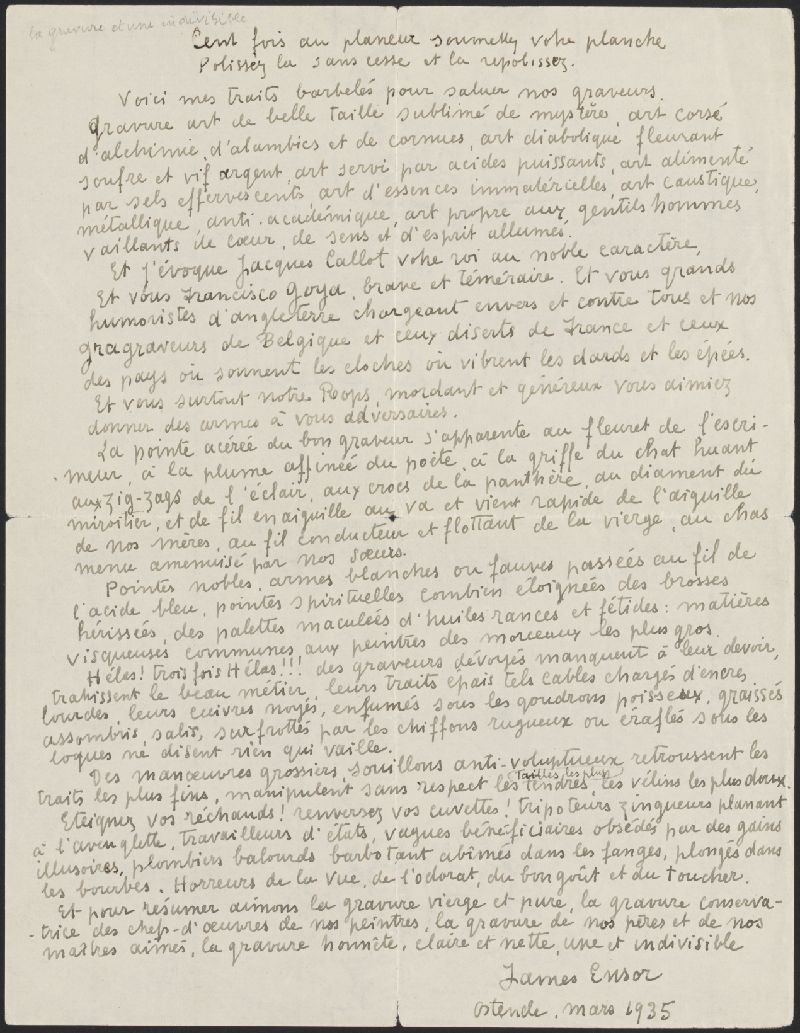 la gravure d'une indivisible
Cent fois au planeur soumettez votre planche
Polissez la sans cesse et la repolissez.
Voici mes traits barbelés pour saluer nos graveurs.
gravure art de belle taille sublimé de mystère, art corsé
d'alchimie, d'alambics et de cornues, art diabolique fleurant
soufre et vif argent, art servi par acides puissants, art alimenté
par sels effervescents art d'essences immatérielles, art caustique,
métallique, anti-académique, art propre aux gentils hommes
vaillants de cœur, de sens et d'esprit allumés.
Et j'évoque Jacques Callot votre roi au noble caractère,
Et vous Francisco Goya, brave et téméraire. Et vous grands
humoristes d'angleterre chargeant envers et contre tous et nos
gragraveurs de Belgique et ceux diserts de France et ceux
des pays où sonnent les cloches où vibrent les dards et les épées.
Et vous surtout notre Roops, mordant et généreux vous aimiez
donner des armes à vous adversaires.
La pointe acérée du bon graveur s'apparente au fleuret de l'escri-
meur, à la plume affinée du poète, à la griffe du chat huant
aux zig-zags de l'éclair, aux crocs de la panthère, au diament du
miroitier, et de fil en aiguille au va et vient rapide de l'aiguille
de nos mères, au fil conducteur et flottant de la vierge, au chas
menu amenuisé par nos sœurs.
Pointes nobles, armes blanches ou fauves passées au fil de
l'acide bleu, pointes spirituelles combien éloignées des brosses
hérissées, des palettes maculées d'huiles rances et fétides: matières
visqueuses communes aux peintres des morceaux les plus gros.
Hélas! trois fois Hélas!!! des graveurs dévoyés manquent à leur devoir,
trahissent le beau métier, leurs traits épais tels cables chargés d'encres
lourdes, leurs cuivres noyés, enfumés sous les goudrons poisseux, graissés
assombris, salis, surfrottés par les chiffons rugueux ou éraflés sous les
coques ne disent rien qui vaille.
Des manœuvres grossiers, souillons anti-voluptueux retroussent les
tailles les plus
traits les plus fins, manipulent sans respect les tendres, les vélins les plus doux.
Eteignez vos réchauds! renversez vos cuvettes! tripoteurs zingueurs planant
à l'aveuglette, travailleurs d'états, vagues bénéficiaires obsédés par des gains
illusoires, plombiers balourds barbotant abîmés dans les fanges, plongés dans
les bourbes. Horreurs de la vue, de l'odorat, du bon goût et du toucher.
Et pour résumer aimons la gravure vierge et pure, la gravure conserva-
-trice des chefs-d'œuvres de nos peintres, la gravure de nos pères et de nos
maîtres aimés, la gravure honnête, claire et nette, une et indivisible
James Ensor
Ostende, mars 1935